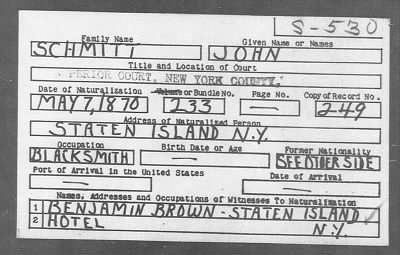 S-530
Family Name Given Name or Names
SCHMITT JOHN
Title and Location of Court
SUPERIOR COURT, NEW YORK COUNTY.
Date of Naturalization Volume or Bundle No. Page No. Copy of Record No.
MAY 7, 1870 233 — 249
Address of Naturalized Person
STATEN ISLAND N.Y.
Occupation Birth Date or Age Former Nationality
BLACKSMITH — SEE OTHER SIDE
Port of Arrival in the United States Date of Arrival
— —
Names, Addresses and Occupations of Witnesses To Naturalization
1 BENJAMIN BROWN - STATEN ISLAND
2 HOTEL N.Y.